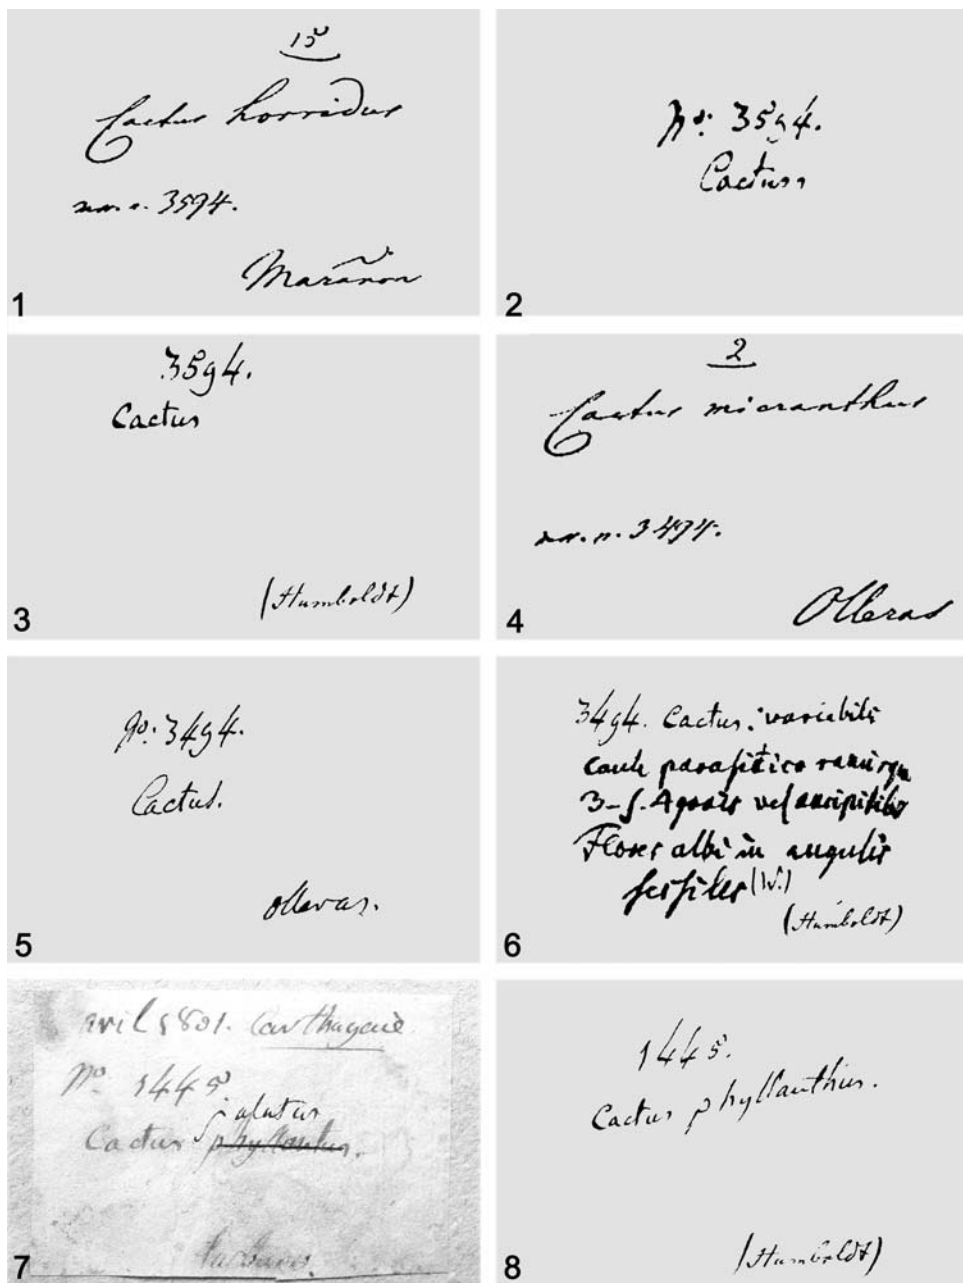 15
Cactus horridus
3594.
Marañon
1
No: 3594.
Cactus
2
3594.
Cactus
(Humboldt)
3
2
Cactus micranthus
n. 3494.
Olleras
4
No: 3494.
Cactus.
olleras.
5
3494. Cactus: variabilis
caule parasitico
3-5. vel ancipitibus
Flores albi in angulis
sessiles (W.)
(Humboldt)
6
avril 1801. Carthagene
No. 1445.
alatus
Cactus phyllantus.
7
1445.
Cactus phyllanthus.
(Humboldt)
8